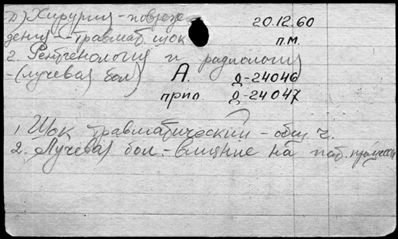 1) Хирургия - повреж- 20.12.60
дения - травмат. шок п.м.
2. Рентгенология и радиология
- (лучевая бол) А. д-24046
прио. д-24047
1. Шок травматический - общ. ч.
2. Лучевая бол. - влияние на пат. процессы